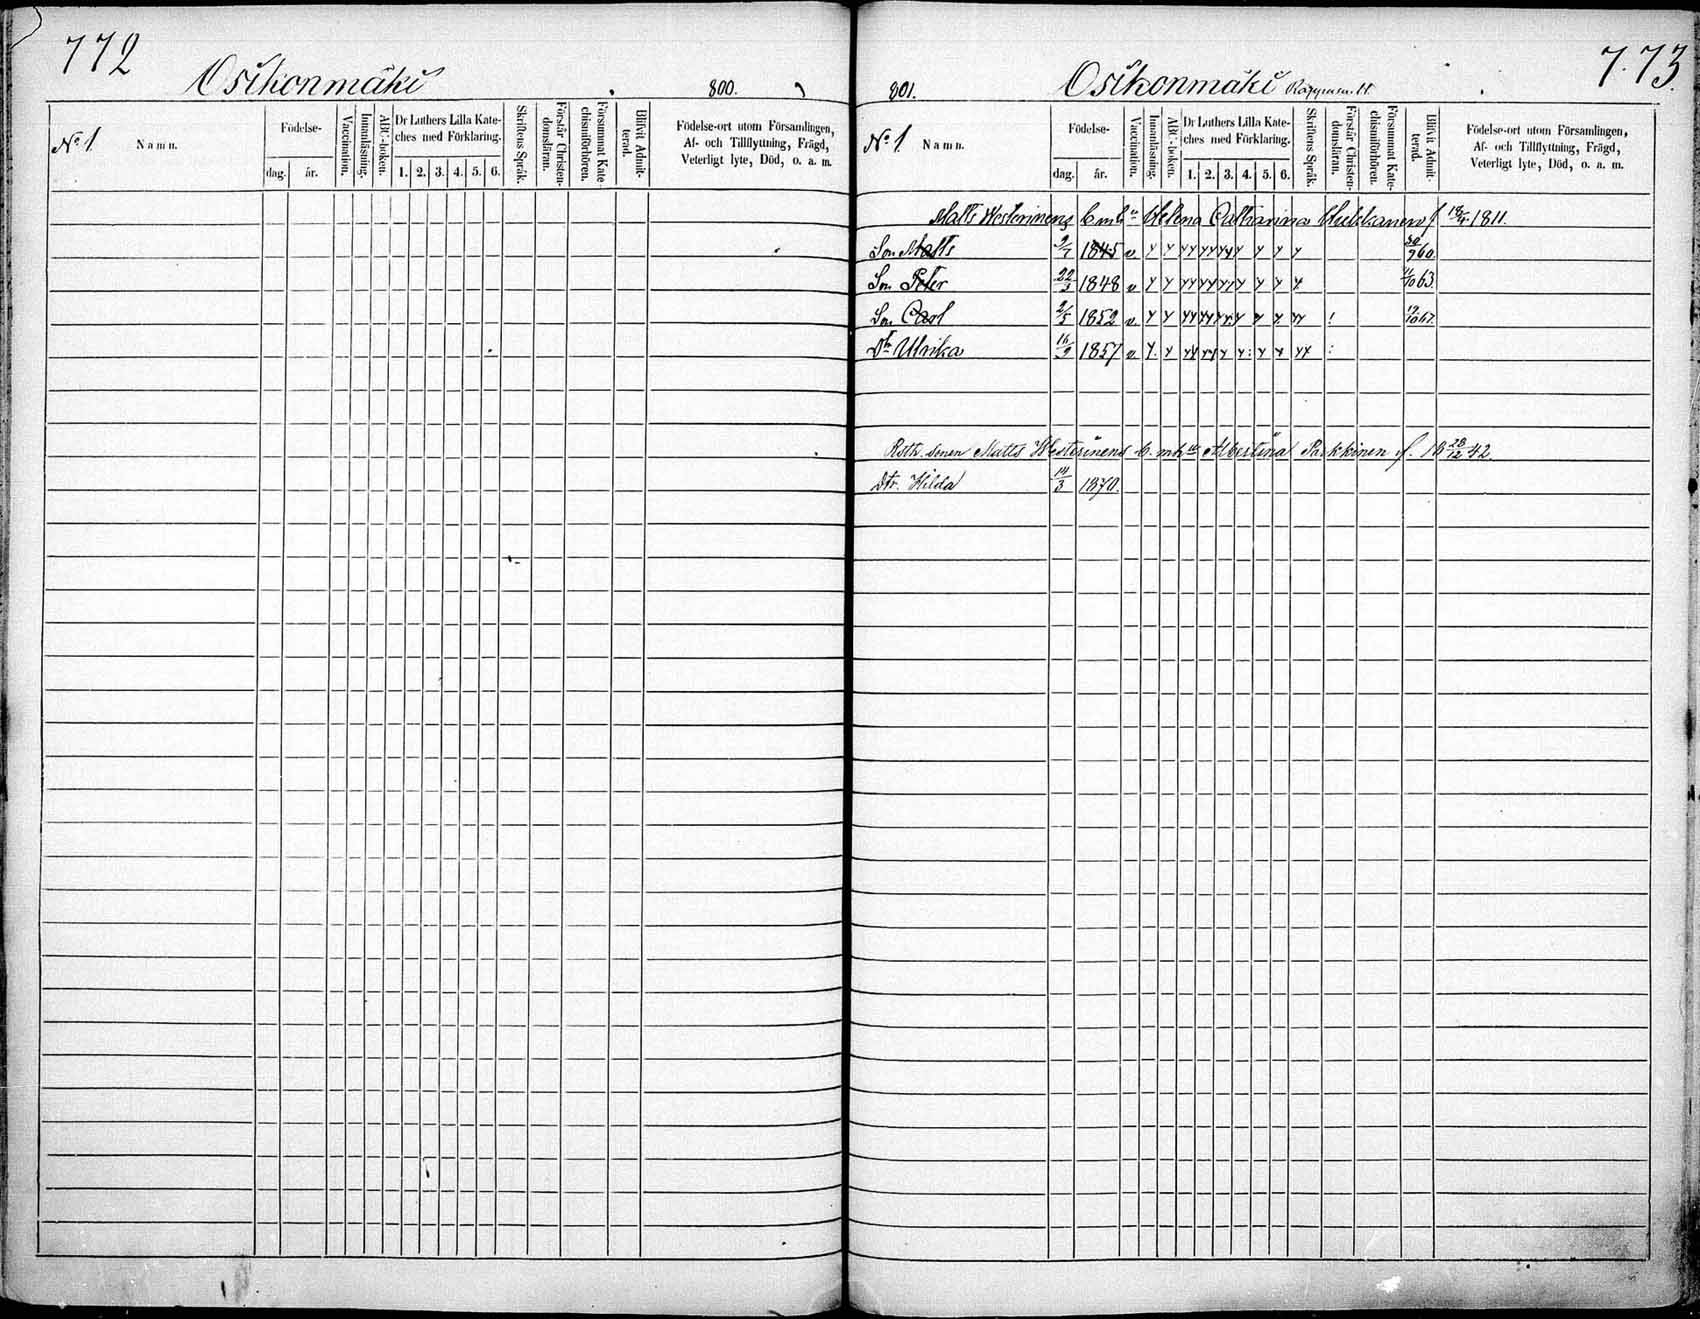 772
Osikonmäki
800.
No 1
Namn.
Födelse-
dag. år.
Vaccination.
Innanläsning.
ABC-boken.
Dr Luthers Lilla Kate-
ches med Förklaring.
1. 2. 3. 4. 5. 6.
Skriftens Språk.
Förstår Christen-
domsläran.
Försummat Kate-
chismiförhören.
Blifvit Admit-
terad.
Födelse-ort utom Församlingen,
Af- och Tillflyttning, Frägd,
Veterligt lyte, Död, o. a. m.
7.73.
801.
Osikonmäki
No 1
Namn.
Födelse-
dag. år.
Vaccination.
Innanläsning.
ABC-boken.
Dr Luthers Lilla Kate-
ches med Förklaring.
1. 2. 3. 4. 5. 6.
Skriftens Språk.
Förstår Christen-
domsläran.
Försummat Kate-
chismiförhören.
Blifvit Admit-
terad.
Födelse-ort utom Församlingen,
Af- och Tillflyttning, Frägd,
Veterligt lyte, Död, o. a. m.
Matts Westerinens Helena Catharina Hukkanen f 18/4 1811.
Son Matts 1845 v 30/9 60.
Son Peter 22/3 1848 v 11/10 63.
Son Carl 2/5 1852 v. 67.
Dtr Ulrika 16/9 1857 v
sonen Matts Westerinens Albertina Parkkinen f. 18 28/12 42.
Dtr. Hilda 14/3 1870.